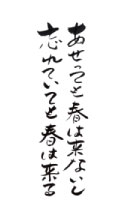 あせっても春は来ないし
忘れていても春は来る